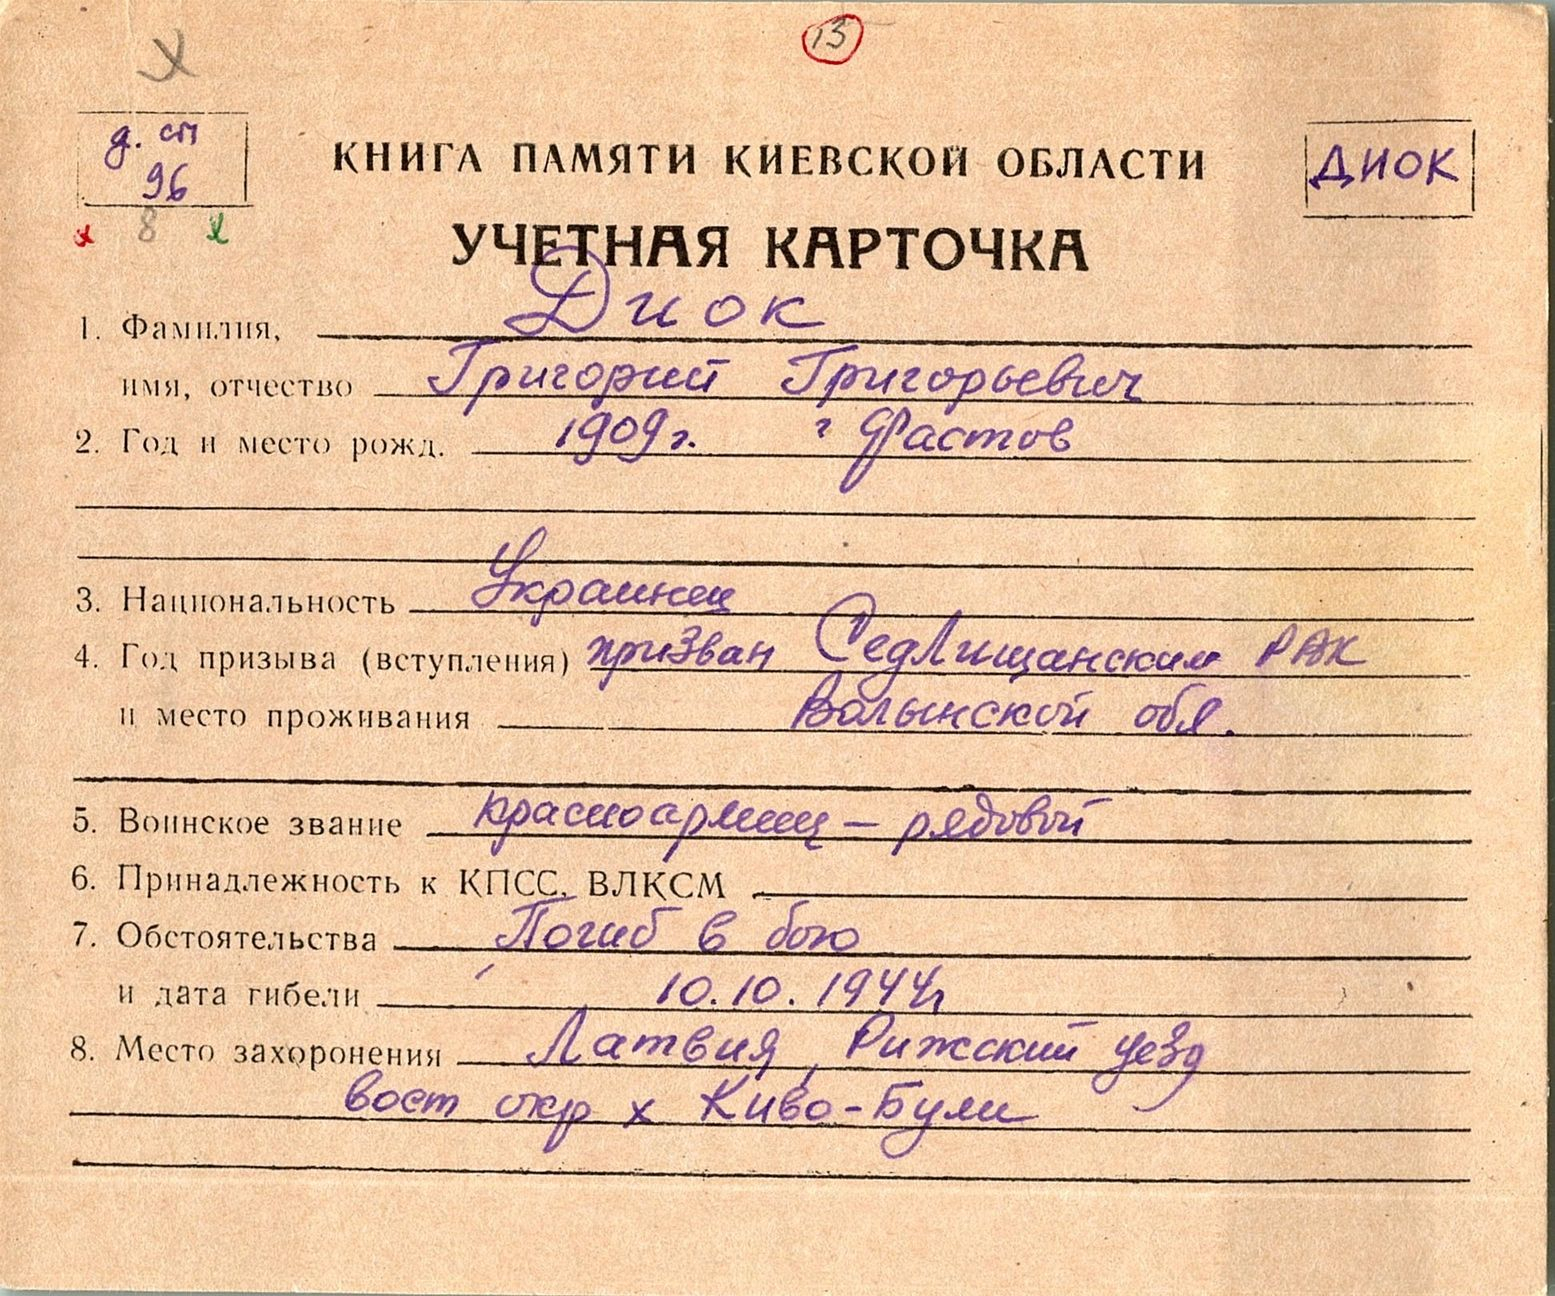 13
д. сп
96
8
КНИГА ПАМЯТИ КИЕВСКОЙ ОБЛАСТИ
ДИОК
УЧЕТНАЯ КАРТОЧКА
1. Фамилия, Диок
имя, отчество Григорий Григорьевич
2. Год и место рожд. 1909г. г Фастов
3. Национальность Украинец
4. Год призыва (вступления) призван Седлищанским РВК
и место проживания Волынской обл.
5. Воинское звание красноармеец – рядовой
6. Принадлежность к КПСС, ВЛКСМ
7. Обстоятельства Погиб в бою
и дата гибели 10.10.1944г
8. Место захоронения Латвия, Рижский уезд
вост окр х Киво-Були